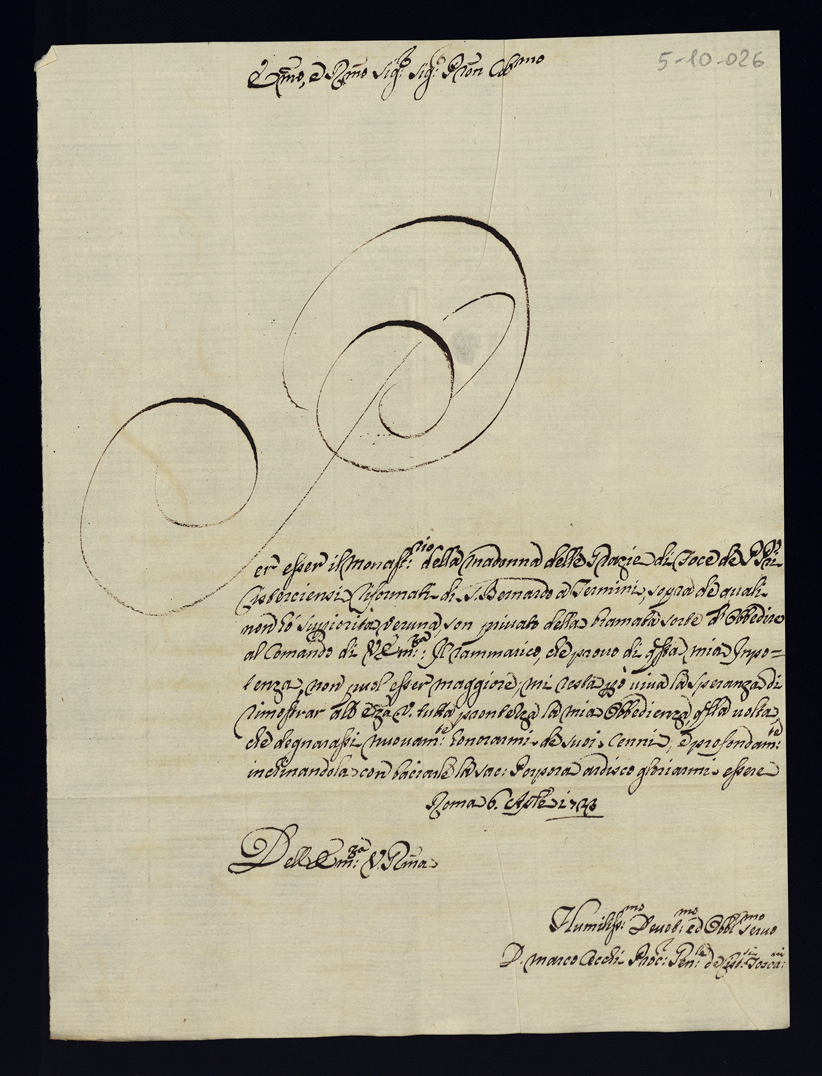 5-10-026
E.mo, e R.mo Sig.r Sig.r P.ron Col.mo
Per esser il Monast.rio della Madonna delle Grazie di de PPri
Cisterciensi Riformati di S. Bernardo a Termini, sopra de quali
non hó superiorita veruna, son privato della bramata sorte d'Obbedire
al Comando di V.Em.za: Il rammarico, che provo di q.sta mia Inpo=
tenza, non puol' esser maggiore, mi resta però viva la speranza di
rimostrar all'E.za V. tutta prontezza la mia Obbedienza, q.lla volta,
che degnarassi nuovam.te honorarmi de suoi Cenni, e profondam.te
inchinandola con baciarle la sac: Porpora ardisco gloriarmi essere
Roma 6. Aple
Dell'Em.za V. R.ma
Humiliss.mo Devot.mo ed Obbl.mo Servo
D. Marco Cecchi Proc: Gen.le de